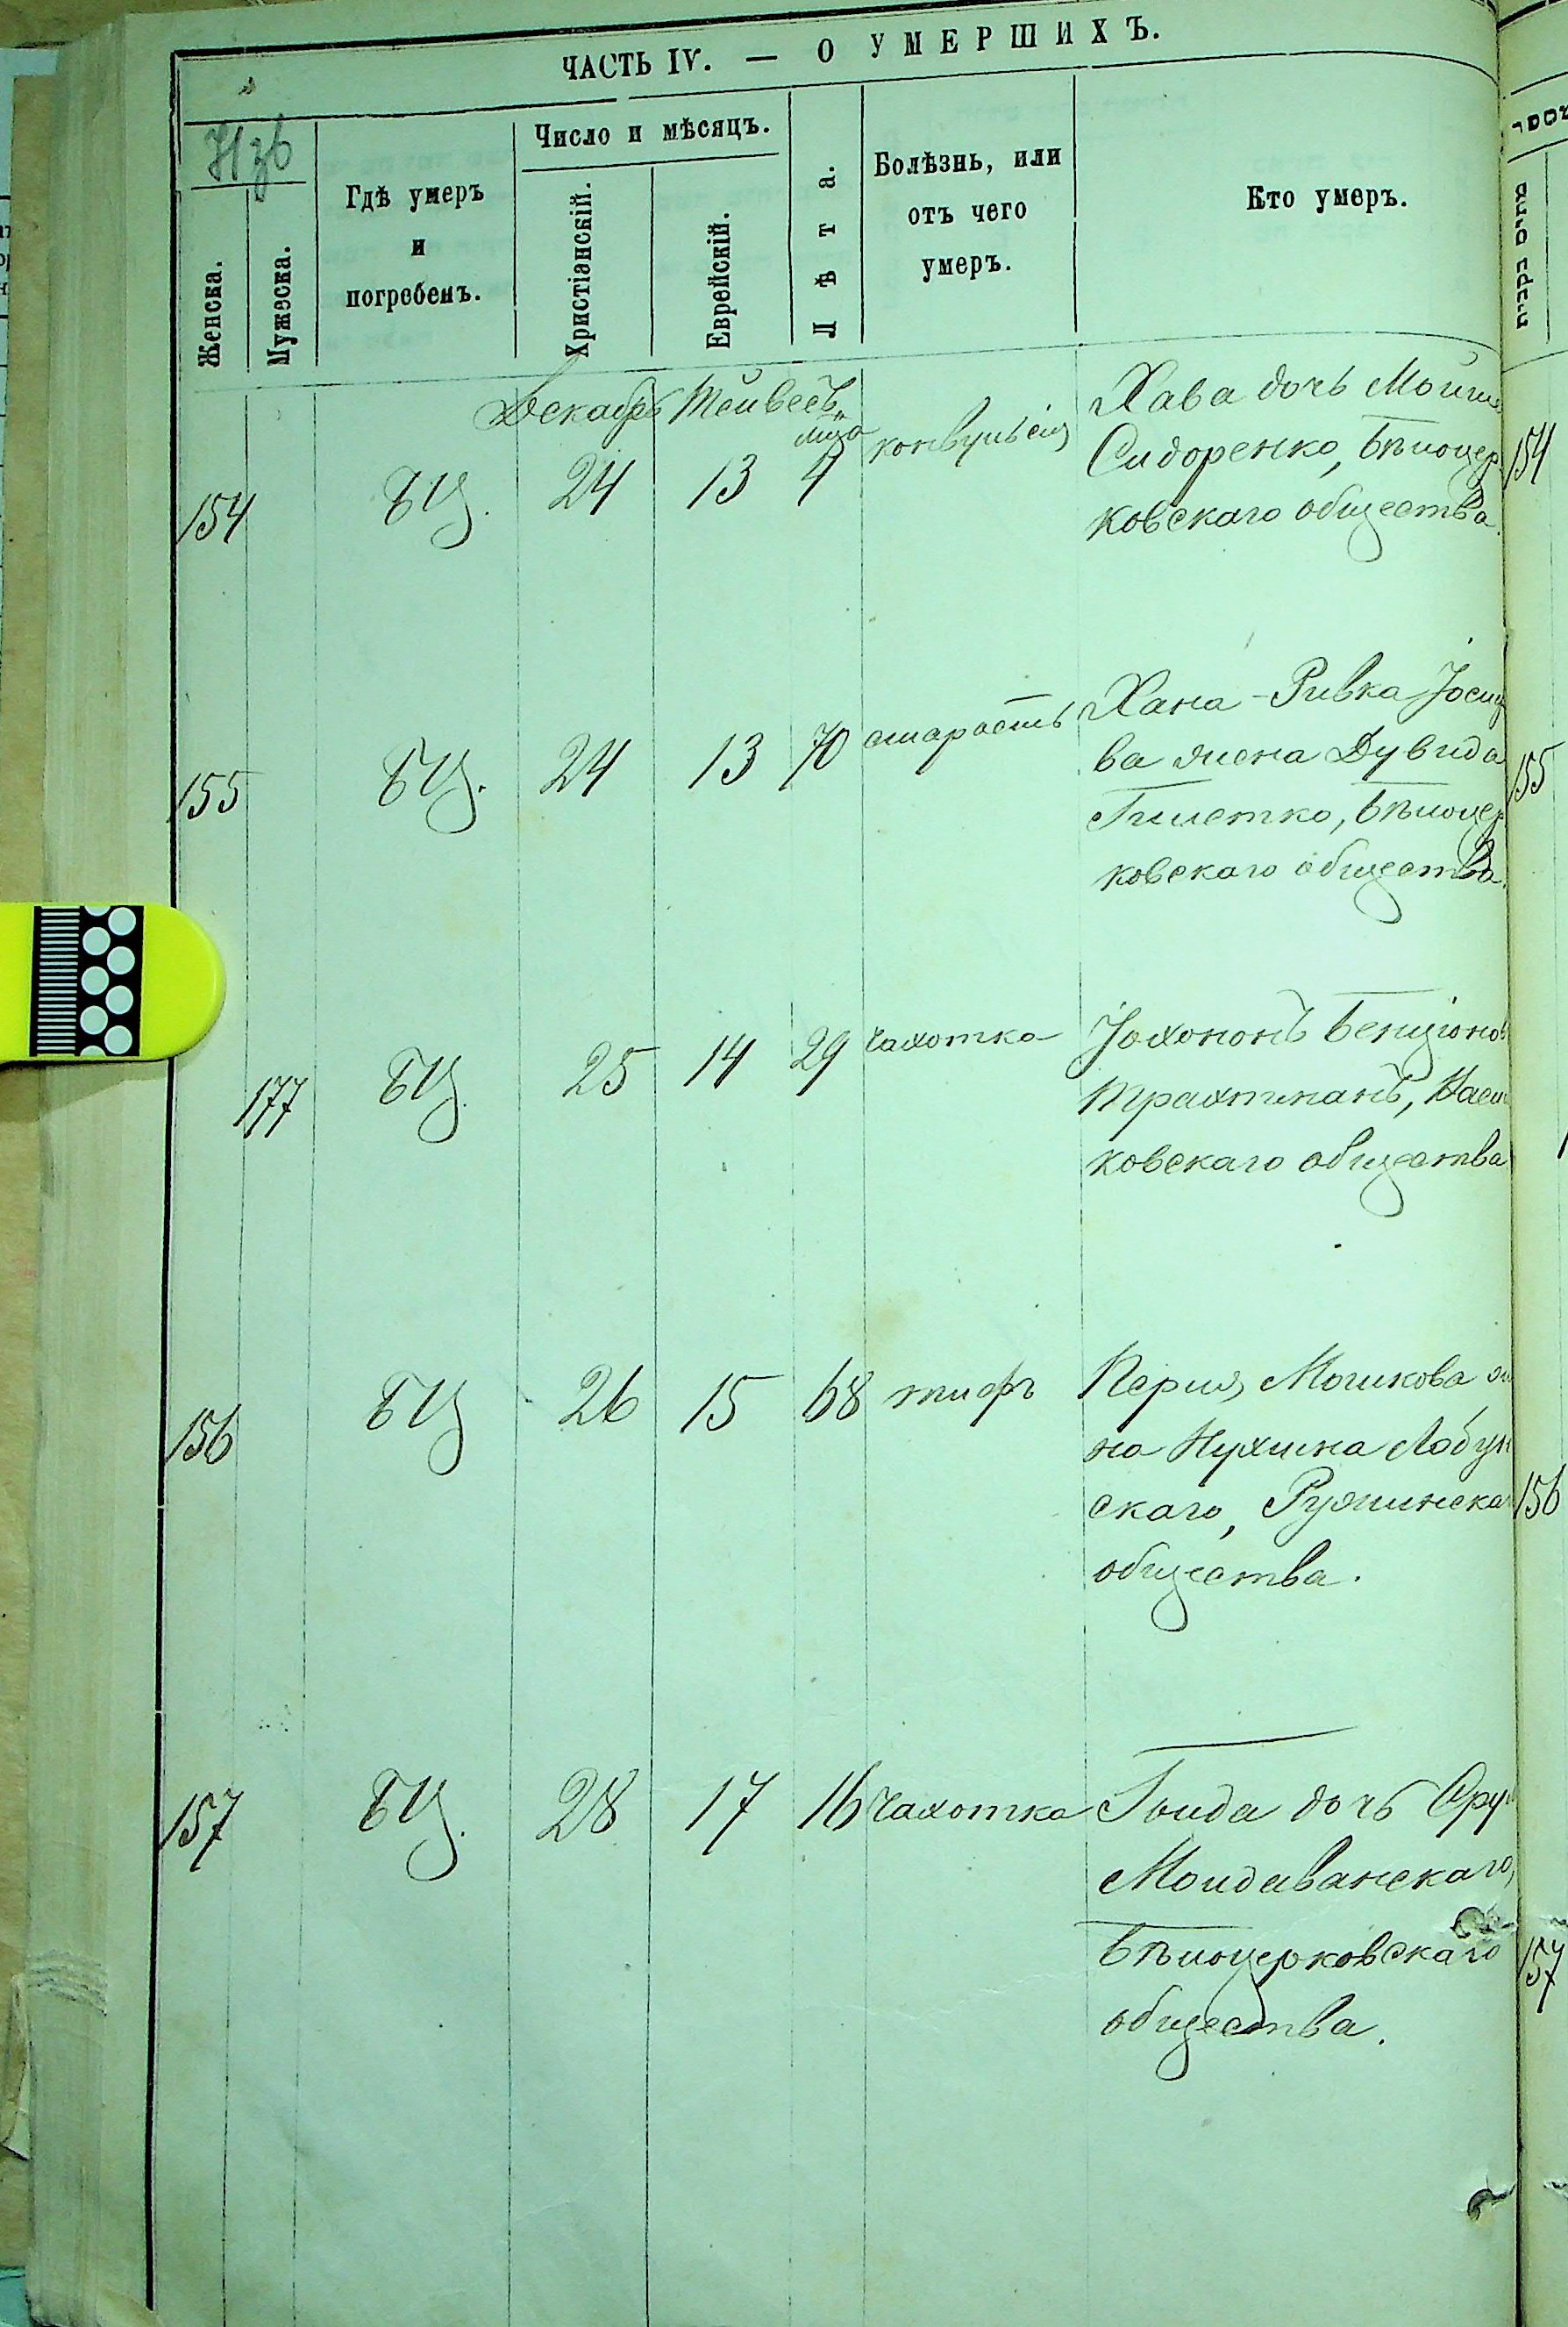 ЧАСТЬ IV. — О УМЕРШИХЪ.
Женска.
Мужеска.
Гдѣ умеръ
и
погребенъ.
Число и мѣсяцъ.
Христіанскій.
Еврейскій.
Лѣта.
Болѣзнь, или
отъ чего
умеръ.
Кто умеръ.
מספר
מתים נקבות
Декабрь Тейвесъ
154 БЦ. 24 13 4 конвульсія
Хава дочь Мойш
Сидоренко, Бѣлоцер
ковскаго общества.
154
155 БЦ. 24 13 70 старость
Хана-Ривка Іосиф
ва жена Дувида
Гилетко, Бѣлоцер
ковскаго общества.
155
177 БЦ. 25 14 29 чахотка
Іохононъ Бенціонов
Трахтманъ,
ковскаго общества
156 БЦ 26 15 68 тифъ
Перля Мошкова ж
на Нухима Лобун
скаго, Ружинска
общества.
156
157 БЦ. 28 17 16 чахотка
Голда дочь Сру
Молдаванскаго,
Бѣлоцерковскаго
общества.
157